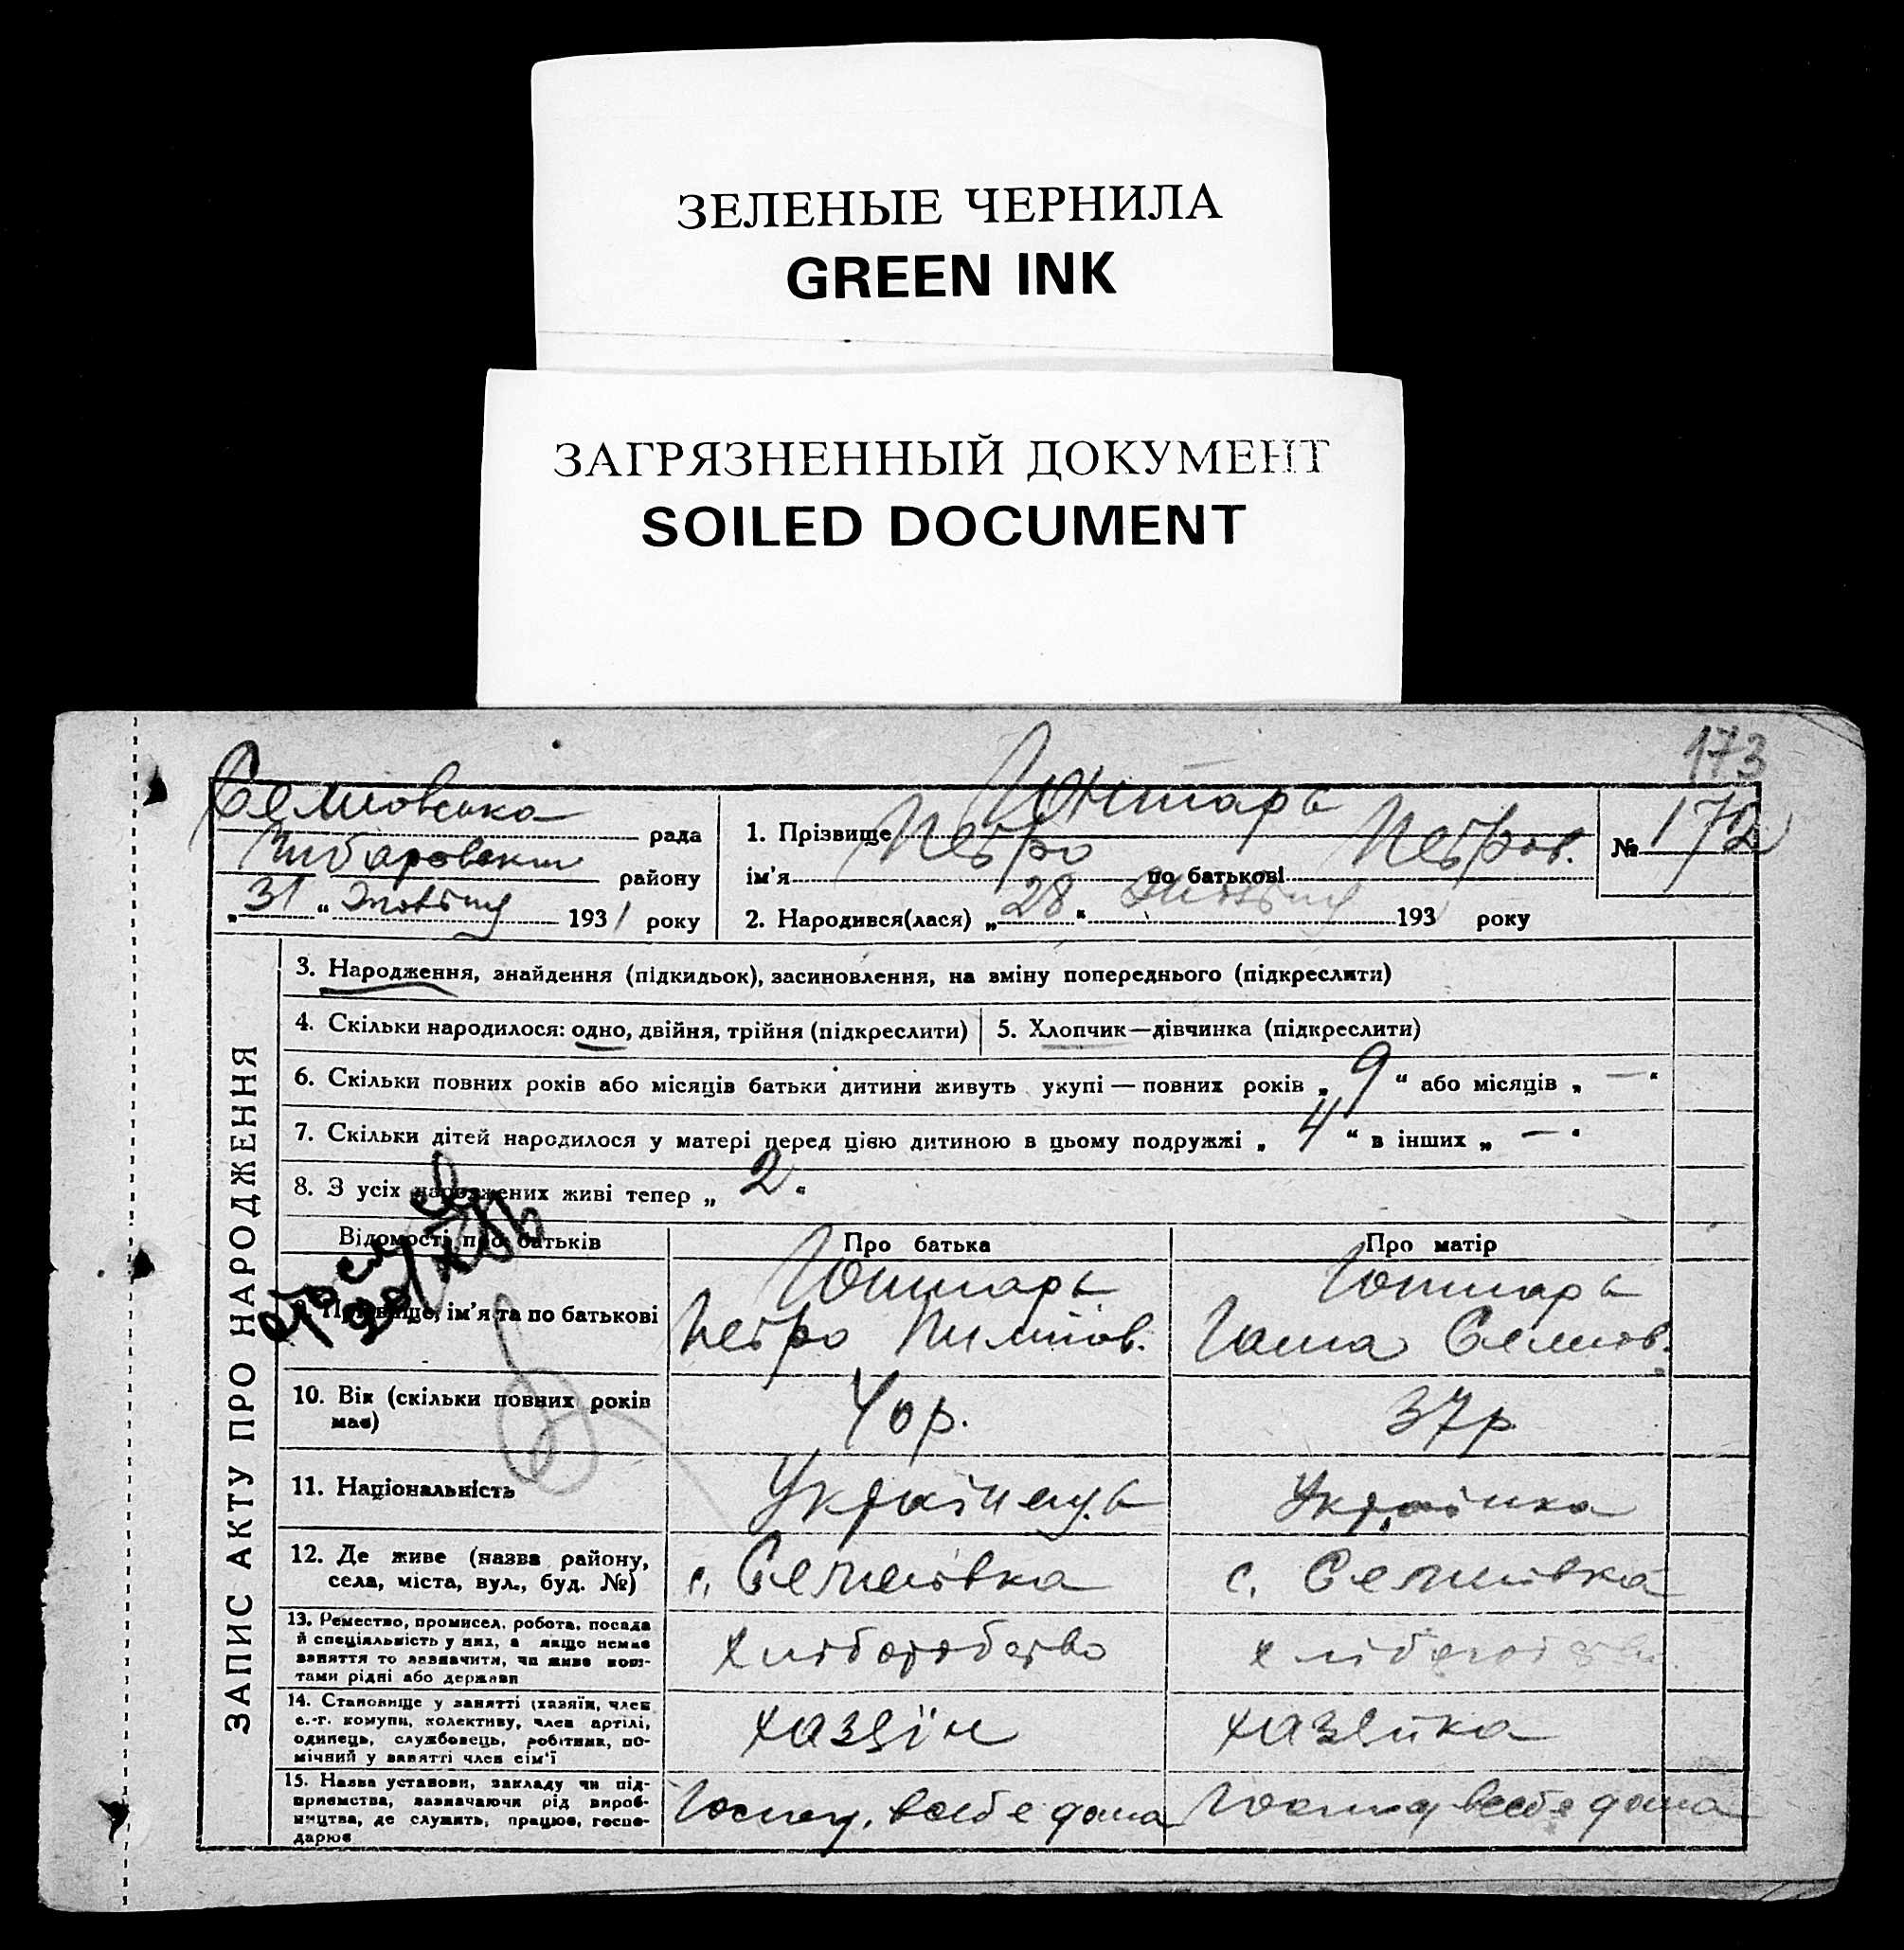 ЗЕЛЕНЫЕ ЧЕРНИЛА
GREEN INK
ЗАГРЯЗНЕННЫЙ ДОКУМЕНТ
SOILED DOCUMENT
173
рада
району
„31“ 1931 року
1. Прізвище
ім'я Петро по батькові Петров.
2. Народився(лася) „28“ 193 року
№ 172
ЗАПИС АКТУ ПРО НАРОДЖЕННЯ
3. Народження, знайдення (підкидьок), засиновлення, на зміну попереднього (підкреслити)
4. Скільки народилося: одно, двійня, трійня (підкреслити)
5. Хлопчик—дівчинка (підкреслити)
6. Скільки повних років або місяців батьки дитини живуть укупі — повних років „9“ або місяців „—“
7. Скільки дітей народилося у матері перед цією дитиною в цьому подружжі „4“ в інших „—“
8. З усіх народжених живі тепер „2“
Відомості про батьків
Про батька
Про матір
9. Прізвище, ім'я та по батькові
Петро Пилипов.
10. Вік (скільки повних років
має)
40 р.
37 р
11. Національність
Українець
Українка
12. Де живе (назва району,
села, міста, вул., буд. №)
с.
с.
13. Ремество, промисел, робота, посада
й спеціяльність у них, а якщо немає
заняття то зазначити, чи живе кош-
тами рідні або держави
хліборобство
14. Становище у занятті (хазяїн, член
с.-г. комуни, колективу, член артілі,
одинець, службовець, робітник, по-
мічний у занятті член сім'ї
хазяїн
хазяйка
15. Назва установи, закладу чи під-
приємства, зазначаючи рід вироб-
ництва, де служить, працює, госпо-
дарює
Господ. в себе дома
Господ в себе дома